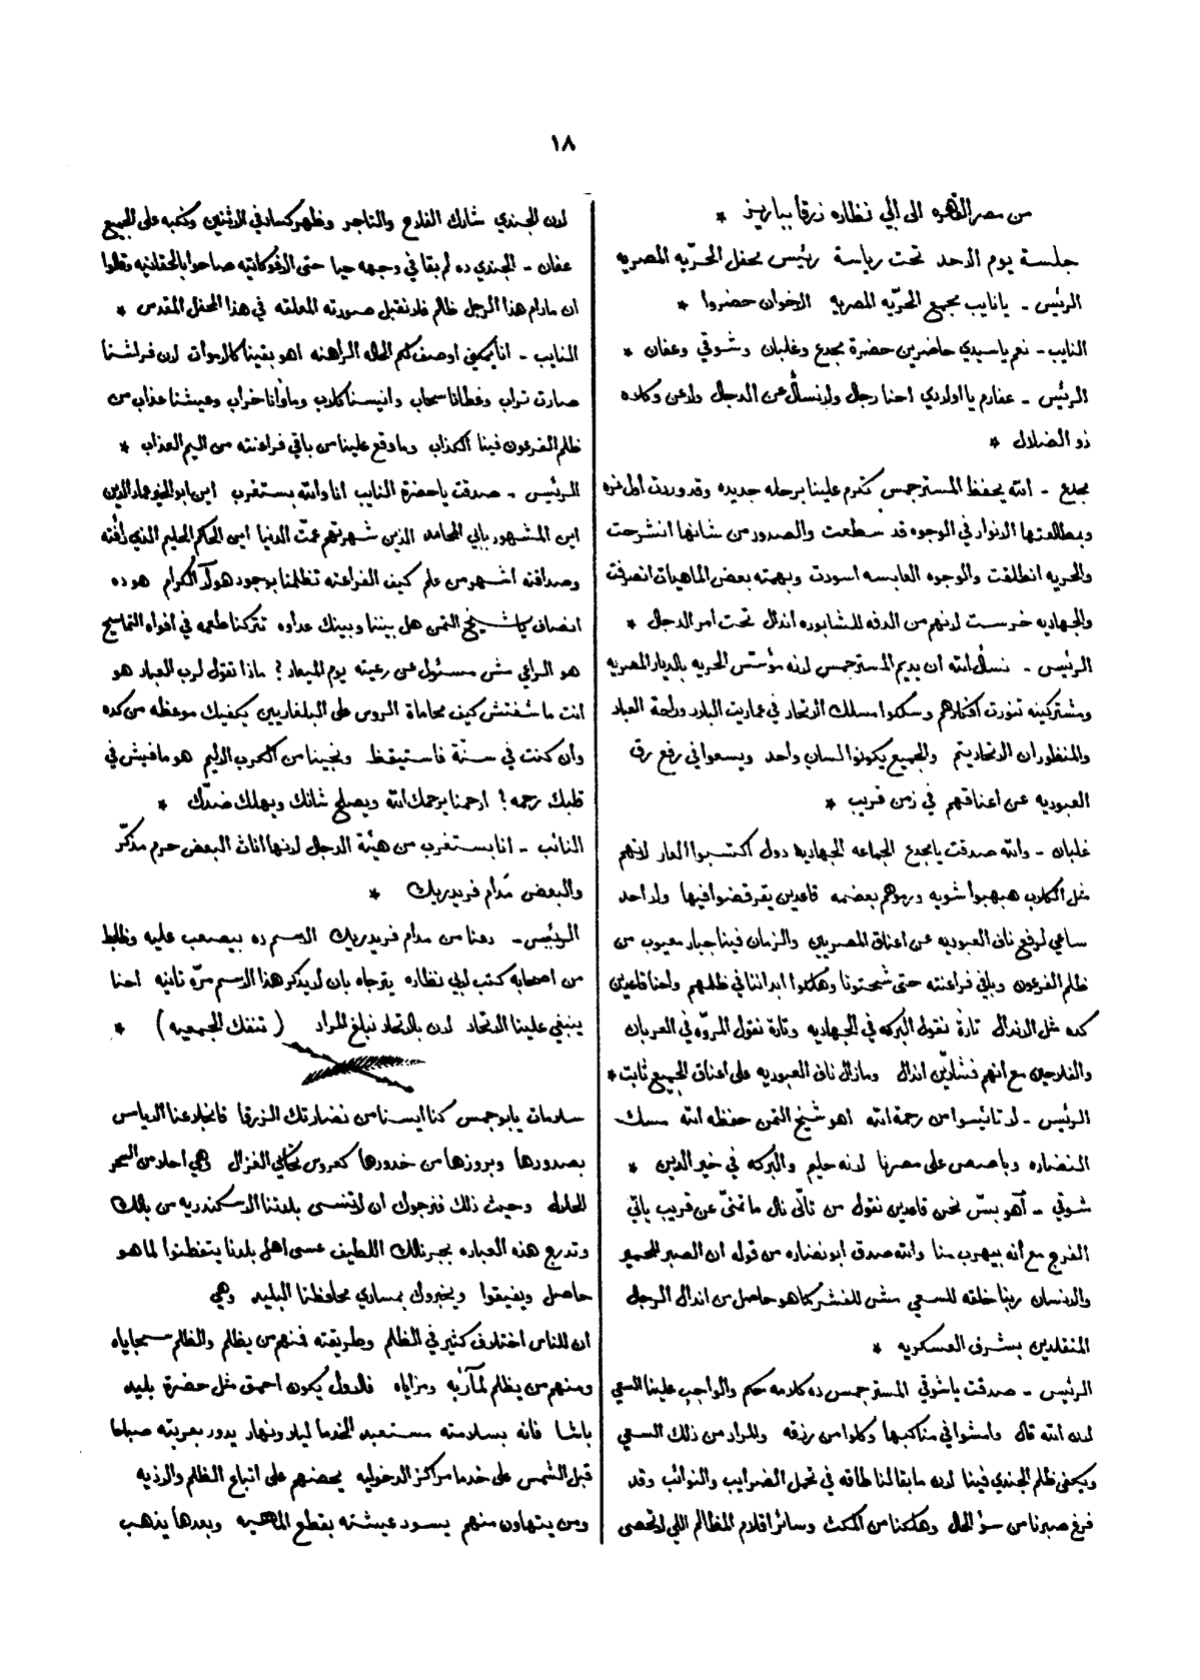 ١٨
من مصر القاهره الى ابي نظاره زرقا بباريز *
جلسة يوم الاحد تحت رياسة رئيس محفل الحرّيه المصريه
الرئيس - يا نايب مجمع الحرّيه المصريه الاخوان حضروا *
النايب - نعم يا سيدي حاضرين حضرة مجدع وغلبان وشوقي وعفان *
الرئيس - عفارم يا اولادي احنا رجل ولا نسأل عن الدجل ولا عن وكلاء
ذو الضلال *
مجدع - الله يحفظ المستر جمس تكرم علينا برحله جديده وقد وردت اول نمره
وبمطالعتها الانوار في الوجوه قد سطعت والصدور من شانها انشرحت
والحريه انطلقت والوجوه العابسه اسودت وبهمته بعض الماهيات انصرفت
والجهاديه خرست لانهم من الدقه للشابوره انذال تحت امر الدجل *
الرئيس - نسأل الله ان يديم المستر جمس لانه مؤسّس الحريه بالديار المصريه
ومشتركينه تنورت افكارهم وسلكوا مسلك الاتحاد في عماريت البلاد وراحة العباد
والمنظور ان الاتحاد يتم والجميع يكونوا لسان واحد ويسعوا في رفع رق
العبوديه عن اعناقهم في زمن قريب *
غلبان - والله صدقت يا مجدع الجماعه الجهاديه دول اكتسبوا العار لانهم
مثل الكلاب هبهبوا شويه ورموهم بعضمه قاعدين يقرقضوا فيها ولا احد
ساعي لرفع ناف العبوديه عن اعناق المصريين والزمان فينا جبار معيوب من
ظلم الفرعون وباقي فراعنته حتى شمتونا وهلكوا ابداننا في ظلمهم واحنا قاعدين
كده مثل الانذال تارة نقول البركه في الجهاديه وتارة نقول المروّه في العربان
والفلاحين مع انهم فشارين انذال ومازال ناف العبوديه على اعناق الجميع ثابت *
الرئيس - لا تائيسوا من رحمة الله اهو شيخ التمن حفظه الله مسك
النضاره وباصص على مصرنا لانه حليم والبركه في خير الدين *
شوقي - آهو بسّ نحن قاعدين نقول من تأنّى نال ما تمنّى عن قريب ياتي
الفرج مع انه بيهرب منا والله صدق ابو نضاره من قوله ان الصبر للحمير
والانسان ربنا خلقه للسعي مش للفشر كما هو حاصل من انذال الرجل
المتقلدين بشرف العسكريه *
الرئيس - صدقت يا شوقي المستر جمس ده كلامه حكم والواجب علينا السعي
لان الله قال وامشوا في مناكبها وكلوا من رزقه والمراد من ذلك السعي
ويكفى ظلم الجندي فينا لان ما بقالنا طاقه في تحمل الضرايب والنوائب وقد
فرغ صبرنا من سؤ الحال وهلكنا من المكث وسائر اقلام المظالم اللي لا تحصى
لان الجندي شارك الفلاح والتاجر وظهر كساد في الاثنين ونكبه على الجميع
عفان - الجندي ده لم بقا في وجهه حيا حتى الافوكاتيه صاحوا بالحقانيه وقالوا
ان مادام هذا الرجل ظالم فلا نقبل صورته المعلقه في هذا المحفل المقدس *
النايب - انا يمكني اوصف لكم الحاله الراهنه اهو بقينا كالاموات لان فراشنا
صارت تراب وغطانا سحاب وانيسنا كلاب ومأوانا خراب وعيشنا عذاب من
ظلم الفرعون فينا الكذاب وما وقع علينا من باقي فراعنته من اليم العذاب *
الرئيس - صدقت يا حضرة النايب انا والله بستغرب اين ابو الخير عماد الدين
اين المشهور بابي المحامد الذين شهرتهم عمّت الدنيا اين الحكم الحليم الذي رأفته
وصداقته اشهر من علم كيف الفراعنه تظلمنا بوجود هولآء الكرام هو ده
انصاف يا شيخ التمن هل بيننا وبينك عداوه تتركنا طعمه في افواه التماسيح
هو الراعي مش مسئول عن رعيته يوم الميعاد؟ ماذا تقول لرب العباد هو
انت ما شفتش كيف محاماة الروس على البلغاريين يكفيك موعظه من كده
وان كنت في سنّة فاستيقظ ونجينا من الكرب الاليم هو ما فيش في
قلبك رحمه؟ ارحمنا يرحمك الله ويصلح شانك ويهلك ضدّك *
النائب - انا بستغرب من هيئة الدجل لانها اناث البعض حرم مذكّر
والبعض مَدام فريدريك *
الرئيس - دعنا من مدام فريدريك الاسم ده بيصعب عليه وظابط
من اصحابه كتب لابي نظاره يترجاه بان لا يذكر هذا الاسم مرّه تانيه احنا
ينبغي علينا الاتحاد لان بالاتحاد نبلغ المراد (تنفك الجمعيه) *
سلامات يا ابو جمس كنا ايسنا من نضارتك الزرقا فانجلا عنا الاياس
بصدورها وبروزها من خدورها كعروس تحاكي الغزال وهي احلا من السحر
الحلال وحيث ذلك فنرجوك ان لا تنسى بلدتنا الاسكندريه من بالك
وتدرج هذه العباره بجرنالك اللطيف عسى اهل بلدنا يتفطنوا لما هو
حاصل ويفيقوا ويخبروك بمساري محافظنا البليد وهي
ان للناس اختلاف كثير في الظلم وطريقته فمنهم من يظلم والظلم سجاياه
ومنهم من يظلم لمآربه ومزاياه فالاول يكون احمق مثل حضرة بليد
باشا فانه بسلامته مستعبد الخدما ليلا ونهار يدور بعربيته صباحا
قبل الشمس على خدما مراكز الدخوليه يحضهم على اتباع الظلم والاذيه
ومن يتهاون منهم يسود عيشته بقطع الماهيه وبعدها يذهب